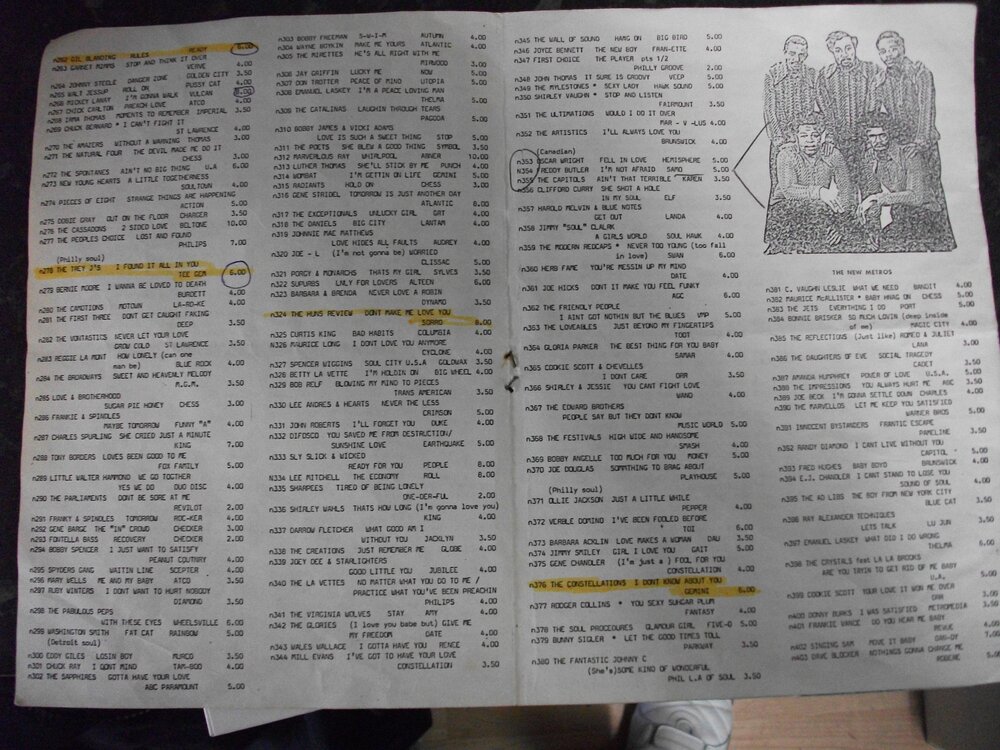 n262 GIL BLANDING RULES READY 6.00
n263 GARNET MIMMS STOP AND THINK IT OVER
VERVE 4.00
n264 JOHNNY STEELE DANGER ZONE GOLDEN CITY 3.50
n265 WALT JESSUP ROLL ON PUSSY CAT 4.00
n266 MICKEY LANAY I'M GONNA WALK VULCAN 8.00
n267 CHICK CARLTON PREACH LOVE ATCO 4.00
n268 IRMA THOMAS MOMENTS TO REMEMBER IMPERIAL 3.50
n269 CHUCK BERNARD * I CAN'T FIGHT IT
ST LAWRENCE 4.00
n270 THE AMAZERS WITHOUT A WARNING THOMAS 3.00
n271 THE NATURAL FOUR THE DEVIL MADE ME DO IT
CHESS 3.00
n272 THE SPONTANES AIN'T NO BIG THING U.A 6.00
n273 NEW YOUNG HEARTS A LITTLE TOGETHERNESS
SOULTOWN 4.00
n274 PIECES OF EIGHT STRANGE THINGS ARE HAPPENING
ACTION 8.00
n275 DOBIE GRAY OUT ON THE FLOOR CHARGER 3.50
n276 THE CASSADONS 2 SIDED LOVE BELTONE 10.00
n277 THE PEOPLES CHOICE LOST AND FOUND
PHILIPS 7.00
(Philly soul)
n278 THE TREY J'S I FOUND IT ALL IN YOU
TEE GEM 6.00
n279 BERNIE MOORE I WANNA BE LOVED TO DEATH
BURDETT 4.00
n280 THE EMOTIONS MOTOWN LA-RO-KE 4.00
n281 THE FIRST THREE DONT GET CAUGHT FAKING
DEEP 3.50
n282 THE VONTASTICS NEVER LET YOUR LOVE
GROW COLD ST LAWRENCE 3.50
n283 REGGIE LA MONT HOW LONELY (can one
man be) BLUE ROCK 4.00
n284 THE BROADWAYS SWEET AND HEAVENLY MELODY
M.G.M. 3.50
n285 LOVE & BROTHERHOOD
SUGAR PIE HONEY CHESS 3.00
n286 FRANKIE & SPINDLES
MAYBE TOMORROW FUNNY "A" 4.00
n287 CHARLES SPURLING SHE CRIED JUST A MINUTE
KING 7.00
n288 TONY BORDERS LOVES BEEN GOOD TO ME
FOX FAMILY 5.00
n289 LITTLE WALTER HAMMOND WE GO TOGTHER
YES WE DO DUO DISC 4.00
n290 THE PARLIAMENTS DONT BE SORE AT ME
REVILOT 2.00
n291 FRANKY & SPINDLES TOMORROW ROE-KER 4.00
n292 GENE BARGE THE "IN" CROWD CHECKER 3.00
n293 FONTELLA BASS RECOVERY CHECKER 2.00
n294 BOBBY SPENCER I JUST WANT TO SATISFY
PEANUT COUTNRY 4.00
n295 SPYDERS GANG WAITIN LINE SCEPTER 4.00
n296 MARY WELLS ME AND MY BABY ATCO 3.50
n297 RUBY WINTERS I DONT WANT TO HURT NOBODY
DIAMOND 3.50
n298 THE FABULOUS PEPS
WITH THESE EYES WHEELSVILLE 6.00
n299 WASHINGTON SMITH FAT CAT RAINBOW 5.00
(Detroit soul)
n300 CODY GILES LOSIN BOY MURCO 3.50
n301 CHUCK RAY I DONT MIND TAM-BOO 4.00
n302 THE SAPPHIRES GOTTA HAVE YOUR LOVE
ABC PARAMOUNT 5.00
n303 BOBBY FREEMAN S-W-I-M AUTUMN 4.00
n304 WAYNE BOYKIN MAKE ME YOURS ATLANTIC 4.00
n305 THE MIRETTES HE'S ALL RIGHT WITH ME
MIRWOOD 3.00
n306 JAY GRIFFIN LUCKY ME NOW 5.00
n307 DON TROTTER PEACE OF MIND UTOPIA 5.00
n308 EMANUEL LASKEY I'M A PEACE LOVING MAN
THELMA 5.00
n309 THE CATALINAS LAUGHIN THROUGH TEARS
PAGODA 5.00
n310 BOBBY JAMES & VICKI ADAMS
LOVE IS SUCH A SWEET THING STOP 5.00
n311 THE POETS SHE BLEW A GOOD THING SYMBOL 3.50
n312 MARVERLOUS RAY WHIRLPOOL ABNER 10.00
n313 LUTHER THOMAS SHE'LL STICK BY ME PUNCH 4.00
n314 WOMBAT I'M GETTIN ON LIFE GEMINI 5.00
n315 RADIANTS HOLD ON CHESS 3.00
n316 GENE STRIDEL TOMORROW IS JUST ANOTHER DAY
ATLANTIC 8.00
n317 THE EXCEPTIONALS UNLUCKY GIRL GRT 4.00
n318 THE DANIELS BIG CITY LANTAM 4.00
n319 JOHNNIE MAE MATTHEWS
LOVE HIDES ALL FAULTS AUDREY 4.00
n320 JOE - L (I'm not gonna be) WORRIED
CLISSAC 5.00
n321 PORGY & MONARCHS THATS MY GIRL SYLVES 3.50
n322 SUPURBS LNLY FOR LOVERS ALTEEN 6.00
n323 BARBARA & BRENDA NEVER LOVE A ROBIN
DYNAMO 3.50
n324 THE HUNS REVIEW DONT MAKE ME LOVE YOU
SORRO 8.00
n325 CURTIS KING BAD HABITS COLUMBIA 4.00
n326 MAURICE LONG I DONT LOVE YOU ANYMORE
CYCLONE 4.00
n327 SPENCER WIGGINS SOUL CITY U.S.A GOLDWAX 3.50
n328 BETTY LA VETTE I'M HOLDIN ON BIG WHEEL 4.00
n329 BOB RELF BLOWING MY MIND TO PIECES
TRANS AMERICAN 3.50
n330 LEE ANDREWS & HEARTS NEVER THE LESS
CRIMSON 5.00
n331 JOHN ROBERTS I'LL FORGET YOU DUKE 4.00
n332 DIFOSCO YOU SAVED ME FROM DESTRUCTION/
SUNSHINE LOVE EARTHQUAKE 5.00
n333 SLY SLICK & WICKED
READY FOR YOU PEOPLE 8.00
n334 LEE MITCHELL THE ECONOMY ROLL 8.00
n335 SHARPEES TIRED OF BEING LONELY
ONE-DER-FUL 2.00
n336 SHIRLEY WAHLS THATS HOW LONG (I'm gonna love you)
KING 4.00
n337 DARROW FLETCHER WHAT GOOD AM I
WITHOUT YOU JACKLYN 3.50
n338 THE CREATIONS JUST REMEMBER ME GLOBE 4.00
n339 JOEY DEE & STARLIGHTERS
GOOD LITTLE YOU JUBILEE 4.00
n340 THE LA VETTES NO MATTER WHAT YOU DO TO ME /
PRACTICE WHAT YOU'VE BEEN PREACHIN
PHILIPS 4.00
n341 THE VIRGINIA WOLVES STAY AMY 4.00
n342 THE GLORIES (I love you babe but) GIVE ME
MY FREEDOM DATE 4.00
n343 WALES WALLACE I GOTTA HAVE YOU RENEE 4.00
n344 MILL EVANS I'VE GOT TO HAVE YOUR LOVE
CONSTELLATION 3.50
n345 THE WALL OF SOUND HANG ON BIG BIRD 5.00
n346 JOYCE BENNETT THE NEW BOY FRAN-ETTE 4.00
n347 FIRST CHOICE THE PLAYER pts 1/2
PHILLY GROOVE 2.00
n348 JOHN THOMAS IT SURE IS GROOVY VEEP 5.00
n349 THE MYLESTONES * SEXY LADY HAWK SOUND 5.00
n350 SHIRLEY VAUGHN * STOP AND LISTEN
FAIRMOUNT 3.50
n351 THE ULTIMATIONS WOULD I DO IT OVER
MAR - V -LUS 4.00
n352 THE ARTISTICS I'LL ALWAYS LOVE YOU
BRUNSWICK 4.00
(Canadian)
n353 OSCAR WRIGHT FELL IN LOVE HEMISPHERE 5.00
n354 FREDDY BUTLER I'M NOT AFRAID SAMO 5.00
n355 THE CAPITOLS AIN'T THAT TERRIBLE KAREN 3.50
n356 CLIFFORD CURRY SHE SHOT A HOLE
IN MY SOUL ELF 3.50
n357 HAROLD MELVIN & BLUE NOTES
GET OUT LANDA 4.00
n358 JIMMY "SOUL" CLALRK
A GIRLS WORLD SOUL HAWK 4.00
n359 THE MODERN REDCAPS * NEVER TOO YOUNG (too fall
in love) SWAN 6.00
n360 HERB FAME YOU'RE MESSIN UP MY MIND
DATE 4.00
n361 JOE HICKS DONT IT MAKE YOU FEEL FUNKY
AGC 6.00
n362 THE FRIENDLY PEOPLE
I AINT GOT NOTHIN BUT THE BLUES VMP 5.00
n363 THE LOVEABLES JUST BEYOND MY FINGERTIPS
TOOT 4.00
n364 GLORIA PARKER THE BEST THING FOR YOU BABY
SAMAR 4.00
n365 COOKIE SCOTT & CHEVELLES
I DONT CARE ORR 3.50
n366 SHIRLEY & JESSIE YOU CANT FIGHT LOVE
WAND 4.00
n367 THE EDWARD BROTHERS
PEOPLE SAY BUT THEY DONT KNOW
MUSIC WORLD 5.00
n368 THE FESTIVALS HIGH WIDE AND HANDSOME
SMASH 4.00
n369 BOBBY ANGELLE TOO MUCH FOR YOU MONEY 5.00
n370 JOE DOUGLAS SOMMTHING TO BRAG ABOUT
PLAYHOUSE 5.00
(Philly soul)
n371 OLLIE JACKSON JUST A LITTLE WHILE
PEPPER 4.00
n372 VERBLE DOMINO I'VE BEEN FOOLED BEFORE
TOI 6.00
n373 BARBARA ACKLIN LOVE MAKES A WOMAN DAU 3.50
n374 JIMMY SMILEY GIRL I LOVE YOU GAIT 5.00
n375 GENE CHANDLER (I'm just a ) FOOL FOR YOU
CONSTELLATION 4.00
n376 THE CONSTELLATIONS I DONT KNOW ABOUT YOU
GEMINI 6.00
n377 RODGER COLLINS * YOU SEXY SUHGAR PLUM
FANTASY 4.00
n378 THE SOUL PROCEDURES GLAMOUR GIRL FIVE-O 5.00
n379 BUNNY SIGLER * LET THE GOOD TIMES TOLL
PARKWAY 3.50
n380 THE FANTASTIC JOHNNY C
(She's)SOME KIND OF WONDERFUL
PHIL L.A OF SOUL 3.50
THE NEW METROS
n381 C. VAUGHN LESLIE WHAT WE NEED BANDIT 4.00
n382 MAURICE McALLISTER * BABY HANG ON CHESS 5.00
n383 THE JETS EVERYTHING I DO PORT 5.00
n384 BONNIE BRISKER SO MUCH LOVIN (deep inside
of me) MAGIC CITY 4.00
n385 THE REFLECTIONS (Just like) ROMEO & JULIET
LANA 3.00
n386 THE DAUGHTERS OF EVE SOCIAL TRAGEDY
CADET 3.50
n387 AMANDA HUMPHREY POWER OF LOVE U.S.A. 5.00
n388 THE IMPRESSIONS YOU ALWAYS HURT ME ABC 3.50
n389 JOE BECK I'M GONNA SETTLE DOWN CHARLES 4.00
n390 THE MARVELLOS LET ME KEEP YOU SATISFIED
WARNER BROS 5.00
n391 INNOCENT BYSTANDERS FRANTIC ESCAPE
PAMELINE 3.50
n392 RANDY DIAMOND I CANT LIVE WITHOUT YOU
CAPITOL 5.00
n393 FRED HUGHES BABY BOYO BRUNSWICK 4.00
n394 E.J. CHANDLER I CANT STAND TO LOSE YOU
SOUND OF SOUL 4.00
n395 THE AD LIBS THE BOY FROM NEW YORK CITY
BLUE CAT 3.50
n396 RAY ALEXANDER TECHNIQUES
LETS TALK LU JUN 3.50
n397 EMANUEL LASKEY WHAT DID I DO WRONG
THELMA 6.00
n398 THE CRYSTALS feat LA LA BROOKS
ARE YOU TRYING TO GET RID OF ME BABY
U.A. 5.00
n399 COOKIE SCOTT YOUR LOVE IT WON ME OVER
ORR 3.00
n400 DONNY BURKS I WAS SATISFIED METROMEDIA 3.50
n401 FRANKIE VANCE DO YOU HEAR ME BABY
REVUE 4.00
n402 SINGING SAM MOVE IT BABY
n403 DAVE BLOCKER NOTHINGS GONNA CHANGE ME
ROBERE 5.00